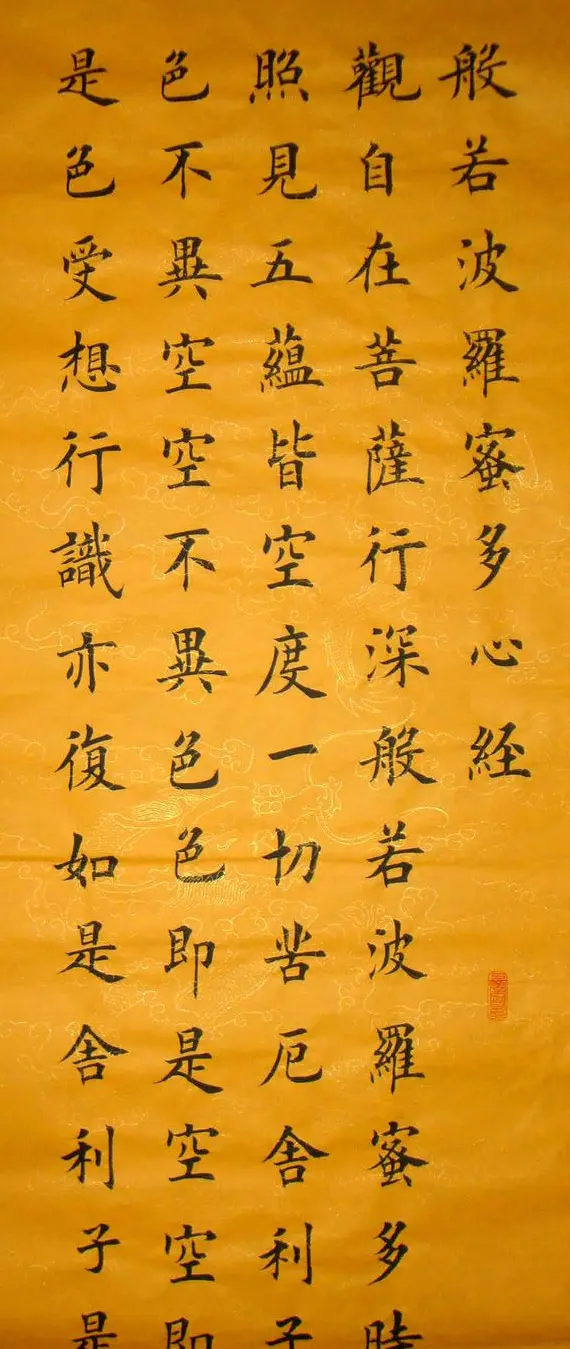 般若波羅蜜多心経
觀自在菩薩行深般若波羅蜜多時
照見五蘊皆空度一切苦厄舍利子
色不異空空不異色色即是空空即
是色受想行識亦復如是舍利子是